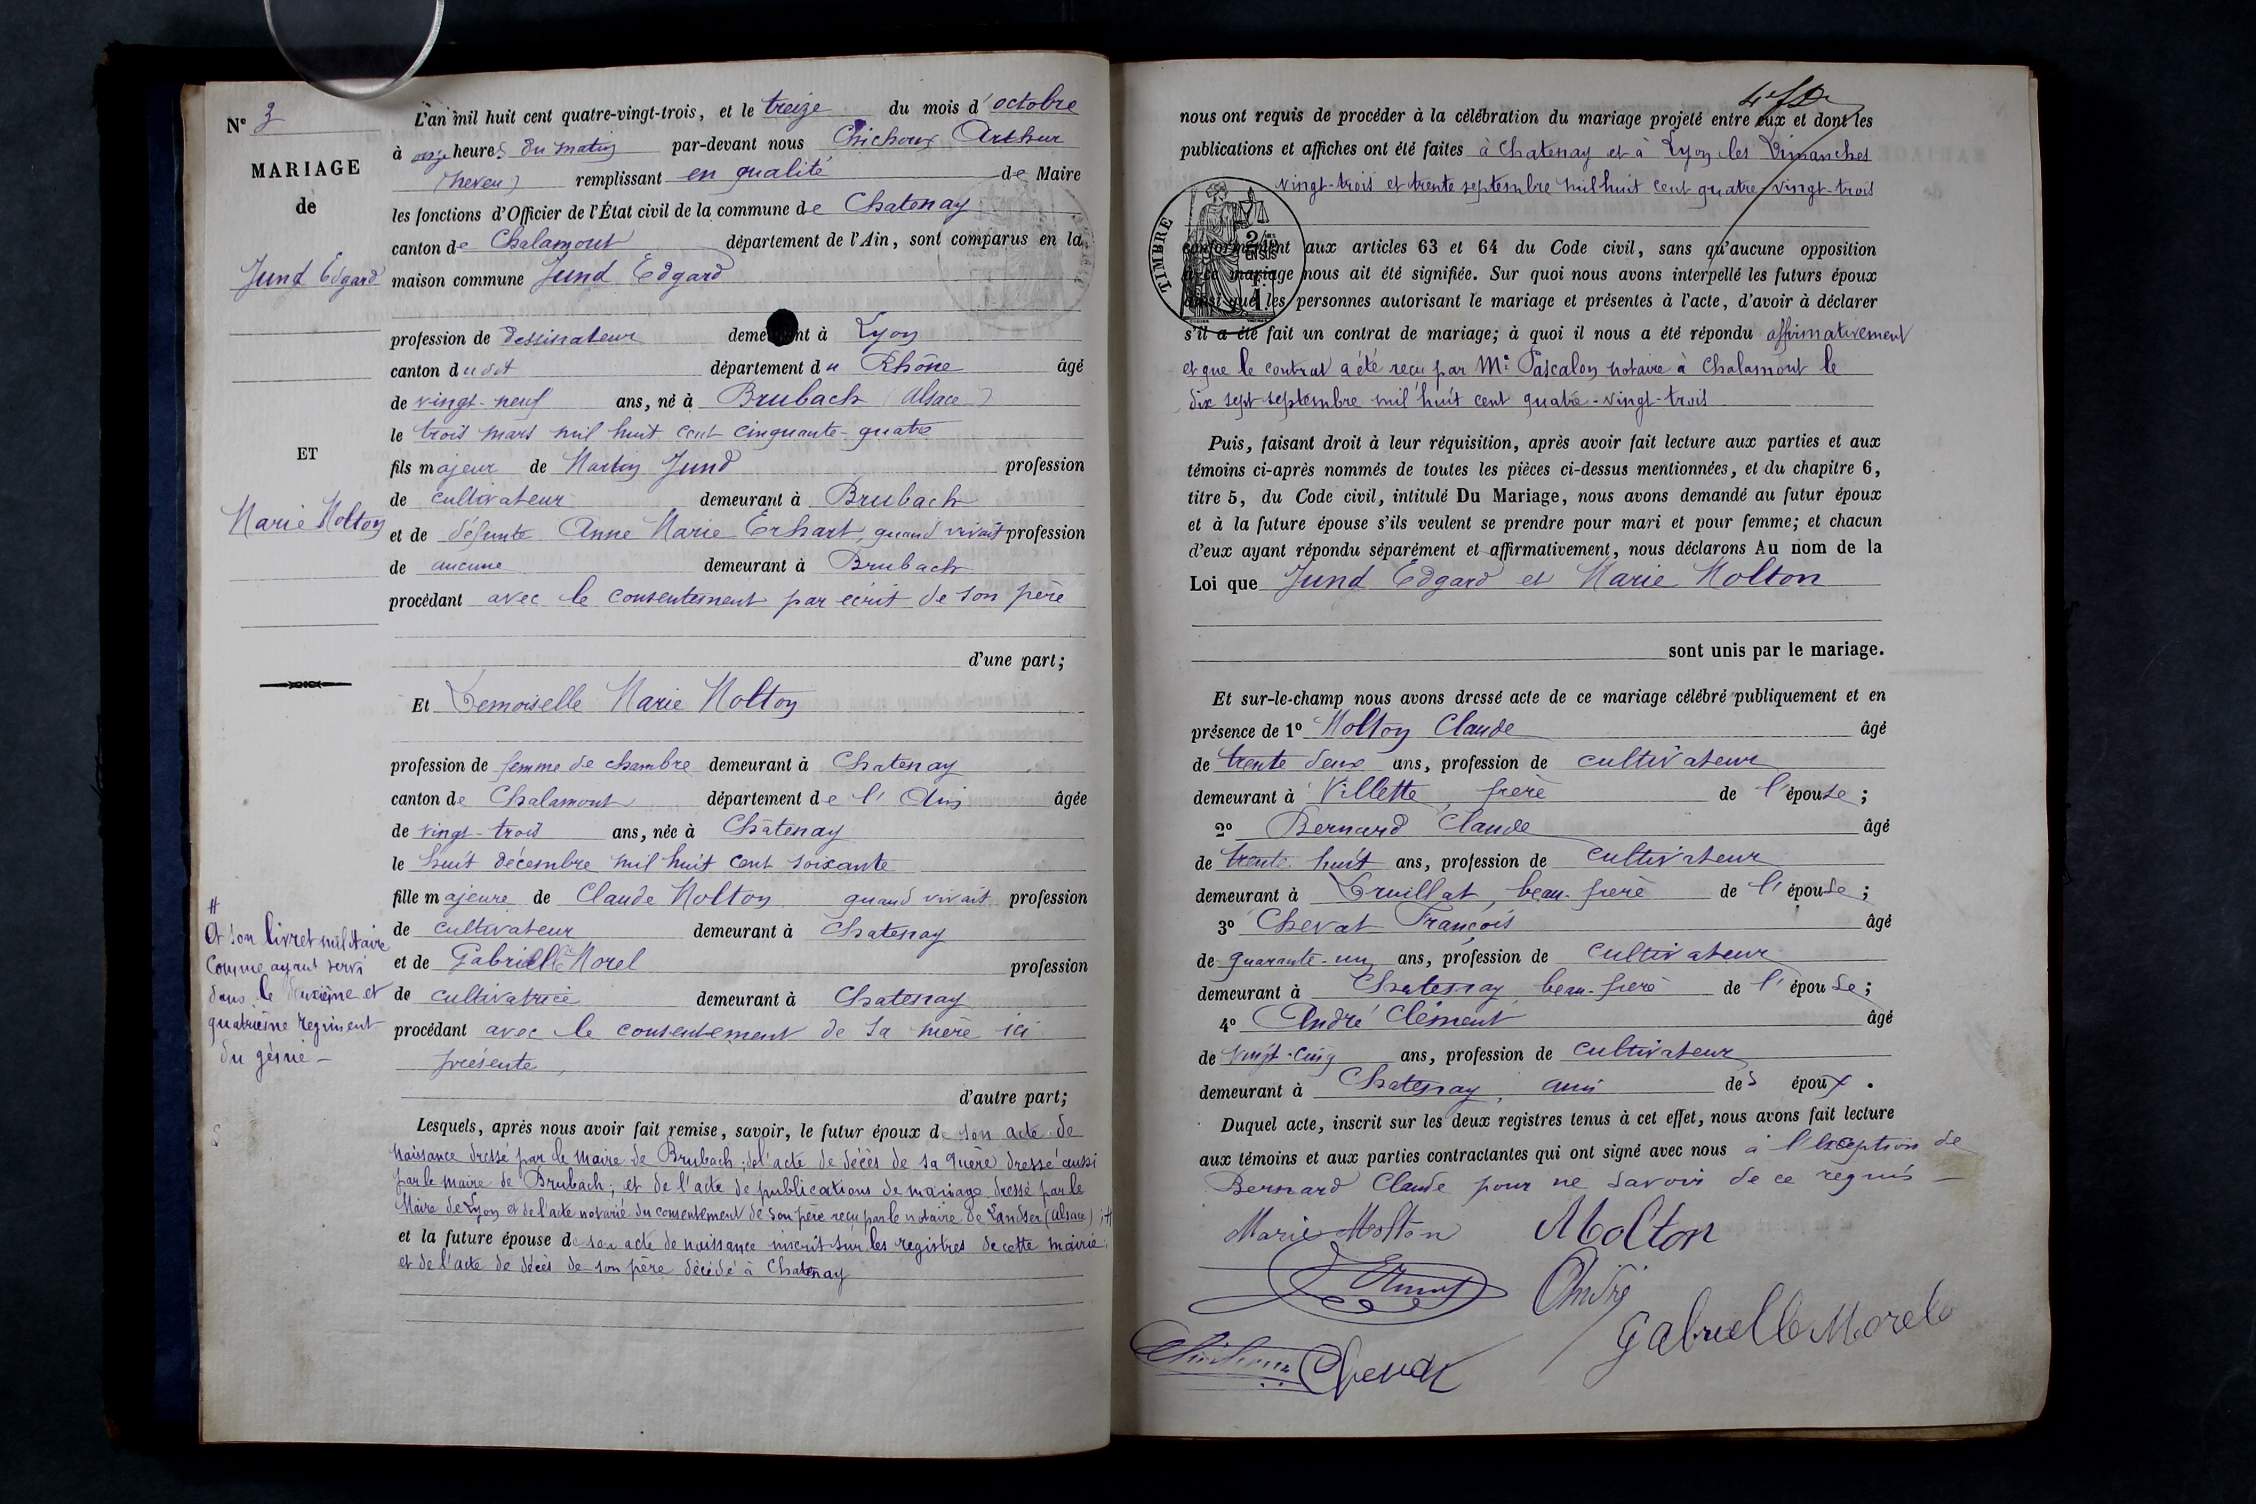 N° 3
MARIAGE
de
Jund Edgard
ET
Marie Molton
#
Et son livret militaire
comme ayant servi
dans le deuxième et
quatrième regiment
du génie —
L'an mil huit cent quatre-vingt-trois, et le treize du mois d'octobre
à onze heures du matin par-devant nous Chichoux Arthur
(neveu) remplissant en qualité de Maire
les fonctions d'Officier de l'État civil de la commune de Chatenay
canton de Chalamont département de l'Ain, sont comparus en la
maison commune Jund Edgard
profession de dessinateur demeurant à Lyon
canton dudit département du Rhône âgé
de vingt-neuf ans, né à Brubach (Alsace)
le trois mars mil huit cent cinquante-quatre
fils majeur de Martin Jund profession
de cultivateur demeurant à Brubach
et de défunte Anne Marie Erhart, quand vivait profession
de aucune demeurant à Brubach
procédant avec le consentement par écrit de son père
d'une part;
Et Demoiselle Marie Molton
profession de femme de chambre demeurant à Chatenay
canton de Chalamont département de l'Ain âgée
de vingt-trois ans, née à Châtenay
le huit décembre mil huit cent soixante
fille majeure de Claude Molton quand vivait profession
de cultivateur demeurant à Chatenay
et de Gabrielle Morel profession
de cultivatrice demeurant à Chatenay
procédant avec le consentement de sa mère ici
présente,
d'autre part;
Lesquels, après nous avoir fait remise, savoir, le futur époux de son acte de
naissance dressé par le maire de Brubach; de l'acte de décès de sa mère dressé aussi
par le maire de Brubach; et de l'acte de publications de mariage dressé par le
Maire de Lyon et de l'acte notarié du consentement de son père reçu par le notaire de Landser (Alsace); #
et la future épouse de son acte de naissance inscrit sur les registres de cette mairie
et de l'acte de décès de son père décédé à Chatenay
nous ont requis de procéder à la célébration du mariage projeté entre eux et dont les
publications et affiches ont été faites à Chatenay et à Lyon les Dimanches
vingt-trois et trente septembre mil huit cent quatre-vingt-trois
TIMBRE
2/10 EN SUS
conformément aux articles 63 et 64 du Code civil, sans qu'aucune opposition
à ce mariage nous ait été signifiée. Sur quoi nous avons interpellé les futurs époux
ainsi que les personnes autorisant le mariage et présentes à l'acte, d'avoir à déclarer
s'il a été fait un contrat de mariage; à quoi il nous a été répondu affirmativement
et que le contrat a été reçu par Me Pascalon notaire à Chalamont le
dix sept septembre mil huit cent quatre-vingt-trois
Puis, faisant droit à leur réquisition, après avoir fait lecture aux parties et aux
témoins ci-après nommés de toutes les pièces ci-dessus mentionnées, et du chapitre 6,
titre 5, du Code civil, intitulé Du Mariage, nous avons demandé au futur époux
et à la future épouse s'ils veulent se prendre pour mari et pour femme; et chacun
d'eux ayant répondu séparément et affirmativement, nous déclarons Au nom de la
Loi que Jund Edgard et Marie Molton
sont unis par le mariage.
Et sur-le-champ nous avons dressé acte de ce mariage célébré publiquement et en
présence de 1° Molton Claude âgé
de trente deux ans, profession de cultivateur
demeurant à Villette, frère de l'épouse;
2° Bernard Claude âgé
de trente huit ans, profession de cultivateur
demeurant à Druillat, beau-frère de l'épouse;
3° Chevat François âgé
de quarante-un ans, profession de cultivateur
demeurant à Chatenay, beau-frère de l'épouse;
4° André Clément âgé
de vingt-cinq ans, profession de cultivateur
demeurant à Chatenay, ami des époux.
Duquel acte, inscrit sur les deux registres tenus à cet effet, nous avons fait lecture
aux témoins et aux parties contractantes qui ont signé avec nous à l'exception de
Bernard Claude pour ne savoir de ce requis —
Marie Molton Molton
EJund André
Gabrielle Morel
Chichoux Chevat